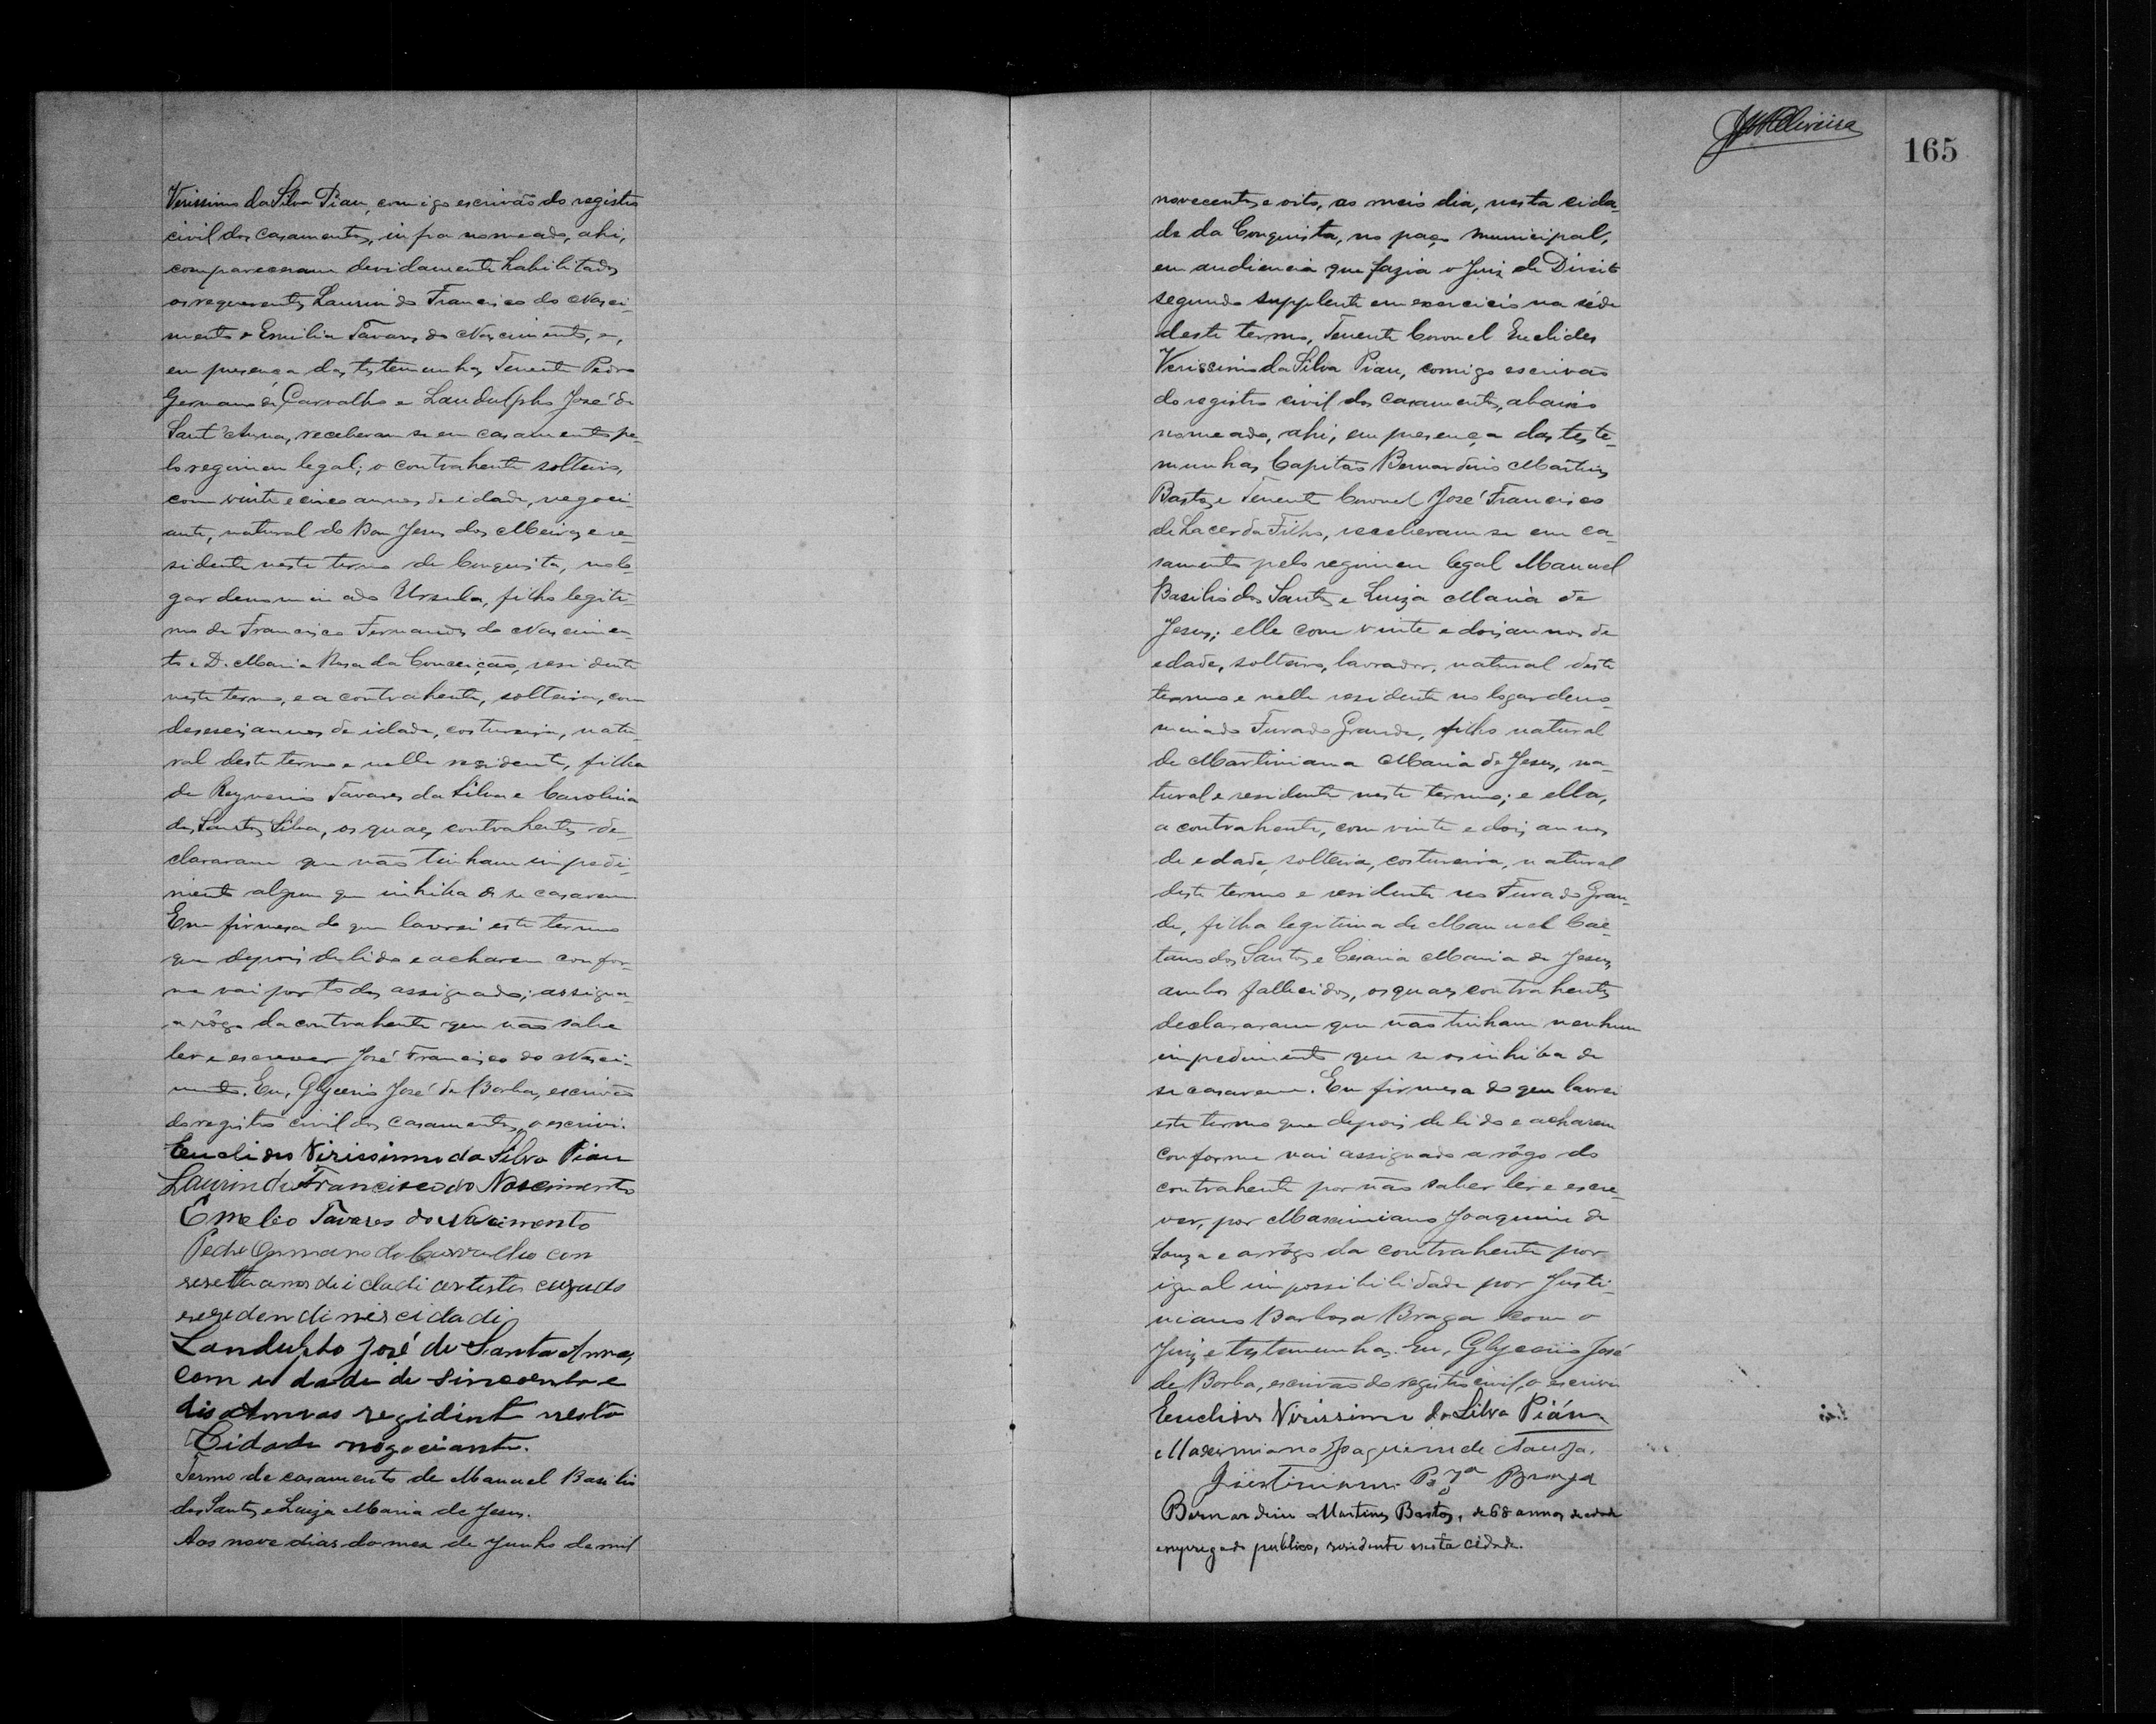 Verissimo da Silva Piau, comigo escrivão do registro
civil dos casamentos, infra nomeado, ahi,
compareceram devidamente habilitados
os requerentes Laurindo Francisco do Nasci-
mento e Emilia Tavares do Nascimento, e,
em presença das testemunhas Tenente Pedro
Germano de Carvalho e Landulpho José de
Sant'Anna, receberam-se em casamento pe-
lo regimen legal; o contrahente solteiro,
com vinte e cinco annos de idade, negoci-
ante, natural do Bom Jesus dos Meiras e re-
sidente neste termo de Conquista, no lo-
gar denominado Ursula, filho legiti-
mo de Francisco Fernandes do Nascimen-
to e D. Maria Rosa da Conceição, residente
neste termo, e a contrahente, solteira, com
deseseis annos de idade, costureira, natu-
ral deste termo e nelle residente, filha
de Tavares da Silva e Carolina
dos Santos Silva, os quaes contrahentes de-
clararam que não tinham impedi-
mento algum que inhiba de se casarem
Em firmesa do que lavrei este termo
que depois de lido e acharem confor-
me vai por todos assignado; assigna
a rôgo da contrahente que não sabe
ler e escrever José Francisco do Nasci-
mento. Eu, Glycerio José de Borba, escrivão
do registro civil dos casamentos, o escrivi.
Euclides Virissimo da Silva Piau
Laurindo Francisco do Nascimento
Emelio Tavares do Nascimento
Pedro Germano de Carvalho con
sesetta annos de idadi artista cazado
e rezidendi nes cidadi
Landulpho José de Santa Anna,
com idade de sincoenta e
dis annos rezidint nesta
Cidade nogociante.
Termo de casamento de Manuel Basilio
dos Santos e Luiza Maria de Jesus.
Aos nove dias do mez de Junho de mil
165
novecentos e oito, ao meio dia, nesta cida-
de da Conquista, no paço municipal,
em audiencia que fazia o Juiz de Direito
segundo supplente em exercicio na séde
deste termo, Tenente Coronel Euclides
Verissimo da Silva Piau, comigo escrivão
do registro civil dos casamentos, abaixo
nomeado, ahi, em presença das teste-
munhas Capitão Bernardino Martins
Bastos e Tenente Coronel José Francisco
de Lacerda Filho, receberam-se em ca-
samento pelo regimen legal Manuel
Basilio dos Santos e Luiza Maria de
Jesus; elle com vinte e dois annos de
edade, solteiro, lavrador, natural deste
termo e nelle residente no logar deno-
minado Furado Grande, filho natural
de Martiniana Maria de Jesus, na-
tural e residente neste termo; e ella,
a contrahente, com vinte e dois annos
de edade, solteira, costureira, natural
deste termo e residente no Furado Gran-
de, filha legitima de Manuel Cae-
tano dos Santos e Cesaria Maria de Jesus,
ambos fallecidos, os quaes contrahentes
declararam que não tinham nenhum
impedimento que se os inhiba de
se casarem. Em firmesa do que lavrei
este termo que depois de lido e acharem
conforme vai assignado a rôgo do
contrahente por não saber ler e escre-
ver, por Maximiano Joaquim de
Souza e a rôgo da contrahente por
igual impossibilidade por Justi-
niano Barbosa Braga com o
Juiz e testemunhas. Eu, Glycerio José
de Borba, escrivão do registro civil, o escrivi
Euclides Virissimo da Silva Piáu
Maximiano Joaquim de Souza.
Justiniano Braga
Bernardino Martins Bastos, de 68 annos de edade
empregado publico, residente nesta cidade.